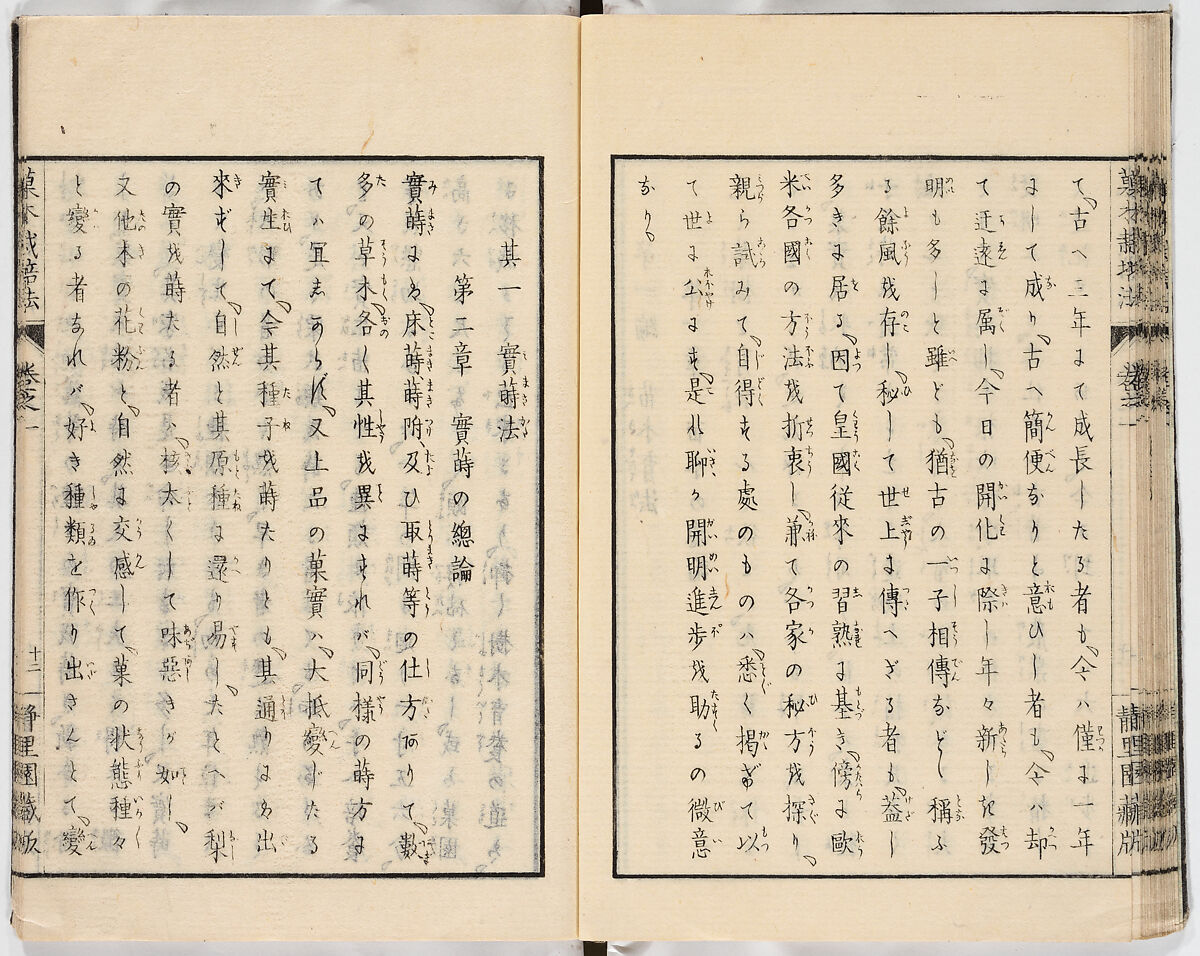 て、古へ三年にて成長したる者も、今ハ僅に一年
にして成り、古へ簡便なりと意ひし者も、今ハ却
て迂遠に属し、今日の開化に際し年々新しき發
明も多しと雖ども、猶古の一子相傳などゝ稱ふ
る餘風を存し、秘して世上に傳へざる者も、蓋し
多きに居る、因て皇國従來の習熟に基き、傍に歐
米各國の方法を折衷し、兼て各家の秘方を探り、
親ら試みて、自得する處のものハ、悉く掲げて以
て世に公にす、是れ聊か開明進歩を助るの微意
なり、
其一 實蒔法
第二章 實蒔の總論
實蒔にハ、床蒔蒔附、及ひ取蒔等の仕方ありて、數
多の草木、各〱其性を異にすれバ、同様の蒔方に
てハ宜しからず、又上品の菓實ハ、大抵變じたる
實生にて、今其種子を蒔たりとも、其通りにハ出
來ずして、自然と其原種に還り易し、たとへバ梨
の實を蒔たる者ハ、核太くして味惡きが如し、
又他木の花粉と、自然に交感して、菓の状態種々
と變る者なれバ、好き種類を作り出さんとて、變
菓木栽培法 卷之一 十二 靜里園藏版